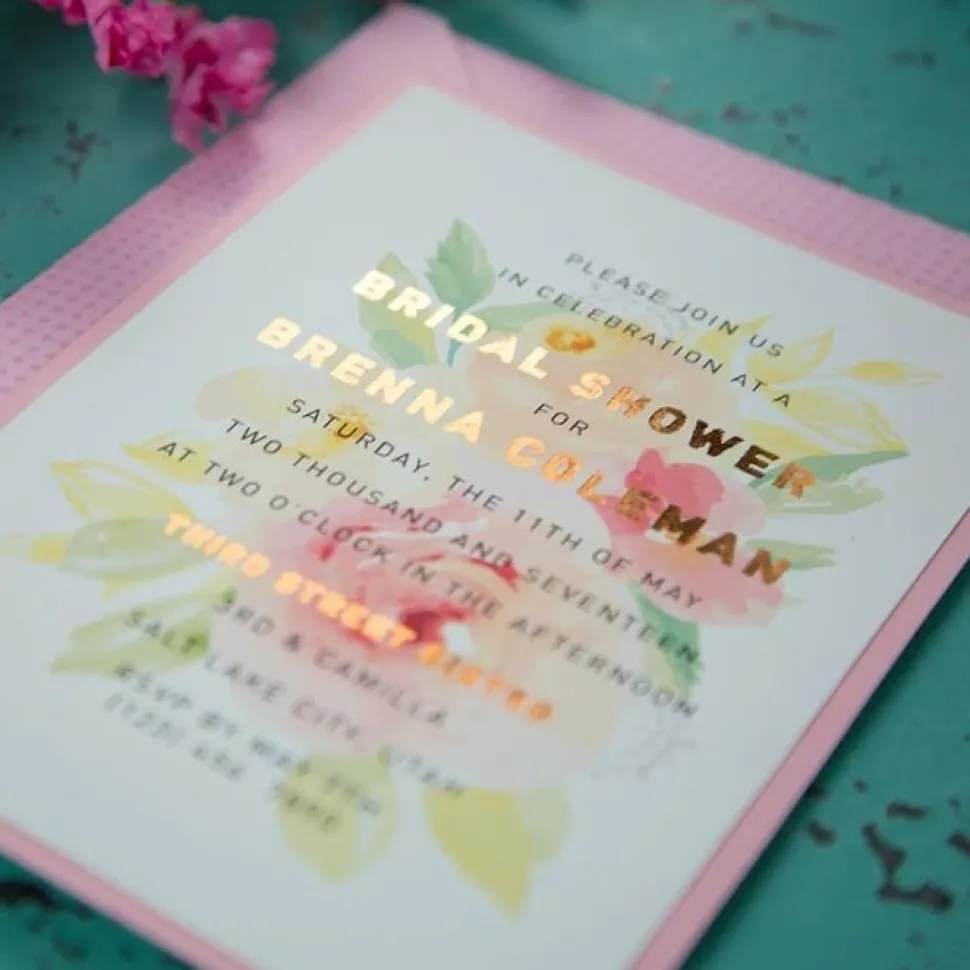 PLEASE JOIN US
IN CELEBRATION AT A
BRIDAL SHOWER
FOR
BRENNA COLEMAN
SATURDAY, THE 11TH OF MAY
TWO THOUSAND AND SEVENTEEN
AT TWO O'CLOCK IN THE AFTERNOON
THIRD STREET
3RD & CAMILLA
SALT LAKE CITY, UTAH
RSVP BY MAY